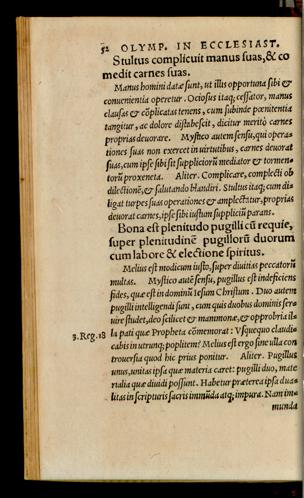 52 OLYMP. IN ECCLESIAST.
Stultus complicuit manus suas, & co
medit carnes suas.
Manus homini datæ sunt, ut illis opportuna sibi &
conuenientia operetur. Ociosus itaq; cessator, manus
clausas & cõplicatas tenens, cum subinde pœnitentia
tangitur, ac dolore distabescit, dicitur meritò carnes
proprias deuorare. Mystico autem sensu, qui opera-
tiones suas non exercet in uirtutibus, carnes deuorat
suas, cum ipse sibi sit suppliciorũ mediator & tormen-
torũ proxeneta. Aliter. Complicare, complecti ob
dilectionẽ, & salutando blandiri. Stultus itaq; cum di-
ligat turpes suas operationes & amplectatur, proprias
deuorat carnes, ipse sibi iustum suppliciũ parans.
Bona est plenitudo pugilli cũ requie,
super plenitudinẽ pugillorũ duorum
cum labore & electione spiritus.
Melius est modicum iusto, super diuitias peccatorũ
multas. Mysticè autẽ sensu, pugillus est indeficiens
fides, quæ est in dominũ Iesum Christum. Duo autem
pugilli intelligendi sunt, cum quis duobus dominis ser-
uire studet, deo scilicet & mammonæ, & opprobria il-
3. Reg. 18 la pati quæ Propheta cõmemorat: Vsquequo claudi-
cabis in utrunq; poplitem? Melius est ergo sine ulla con
trouersia quod hic prius ponitur. Aliter. Pugillus
unus, unitas ipsa quæ materia caret: pugilli duo, mate
rialia quæ diuidi possunt. Habetur præterea ipsa dua-
litas in scripturis sacris immũda atq; impura. Nam im-
munda